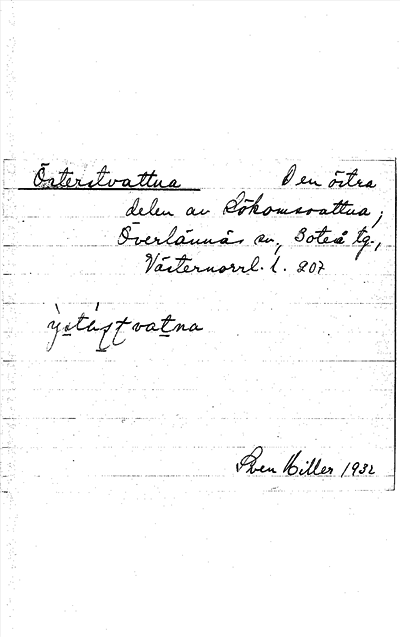 Österstvattna Den östra
delen av Lökomsvattna;
Överlännäs sn., Boteå tg.,
Västernorrl. l. 207
Sven Hiller 1932